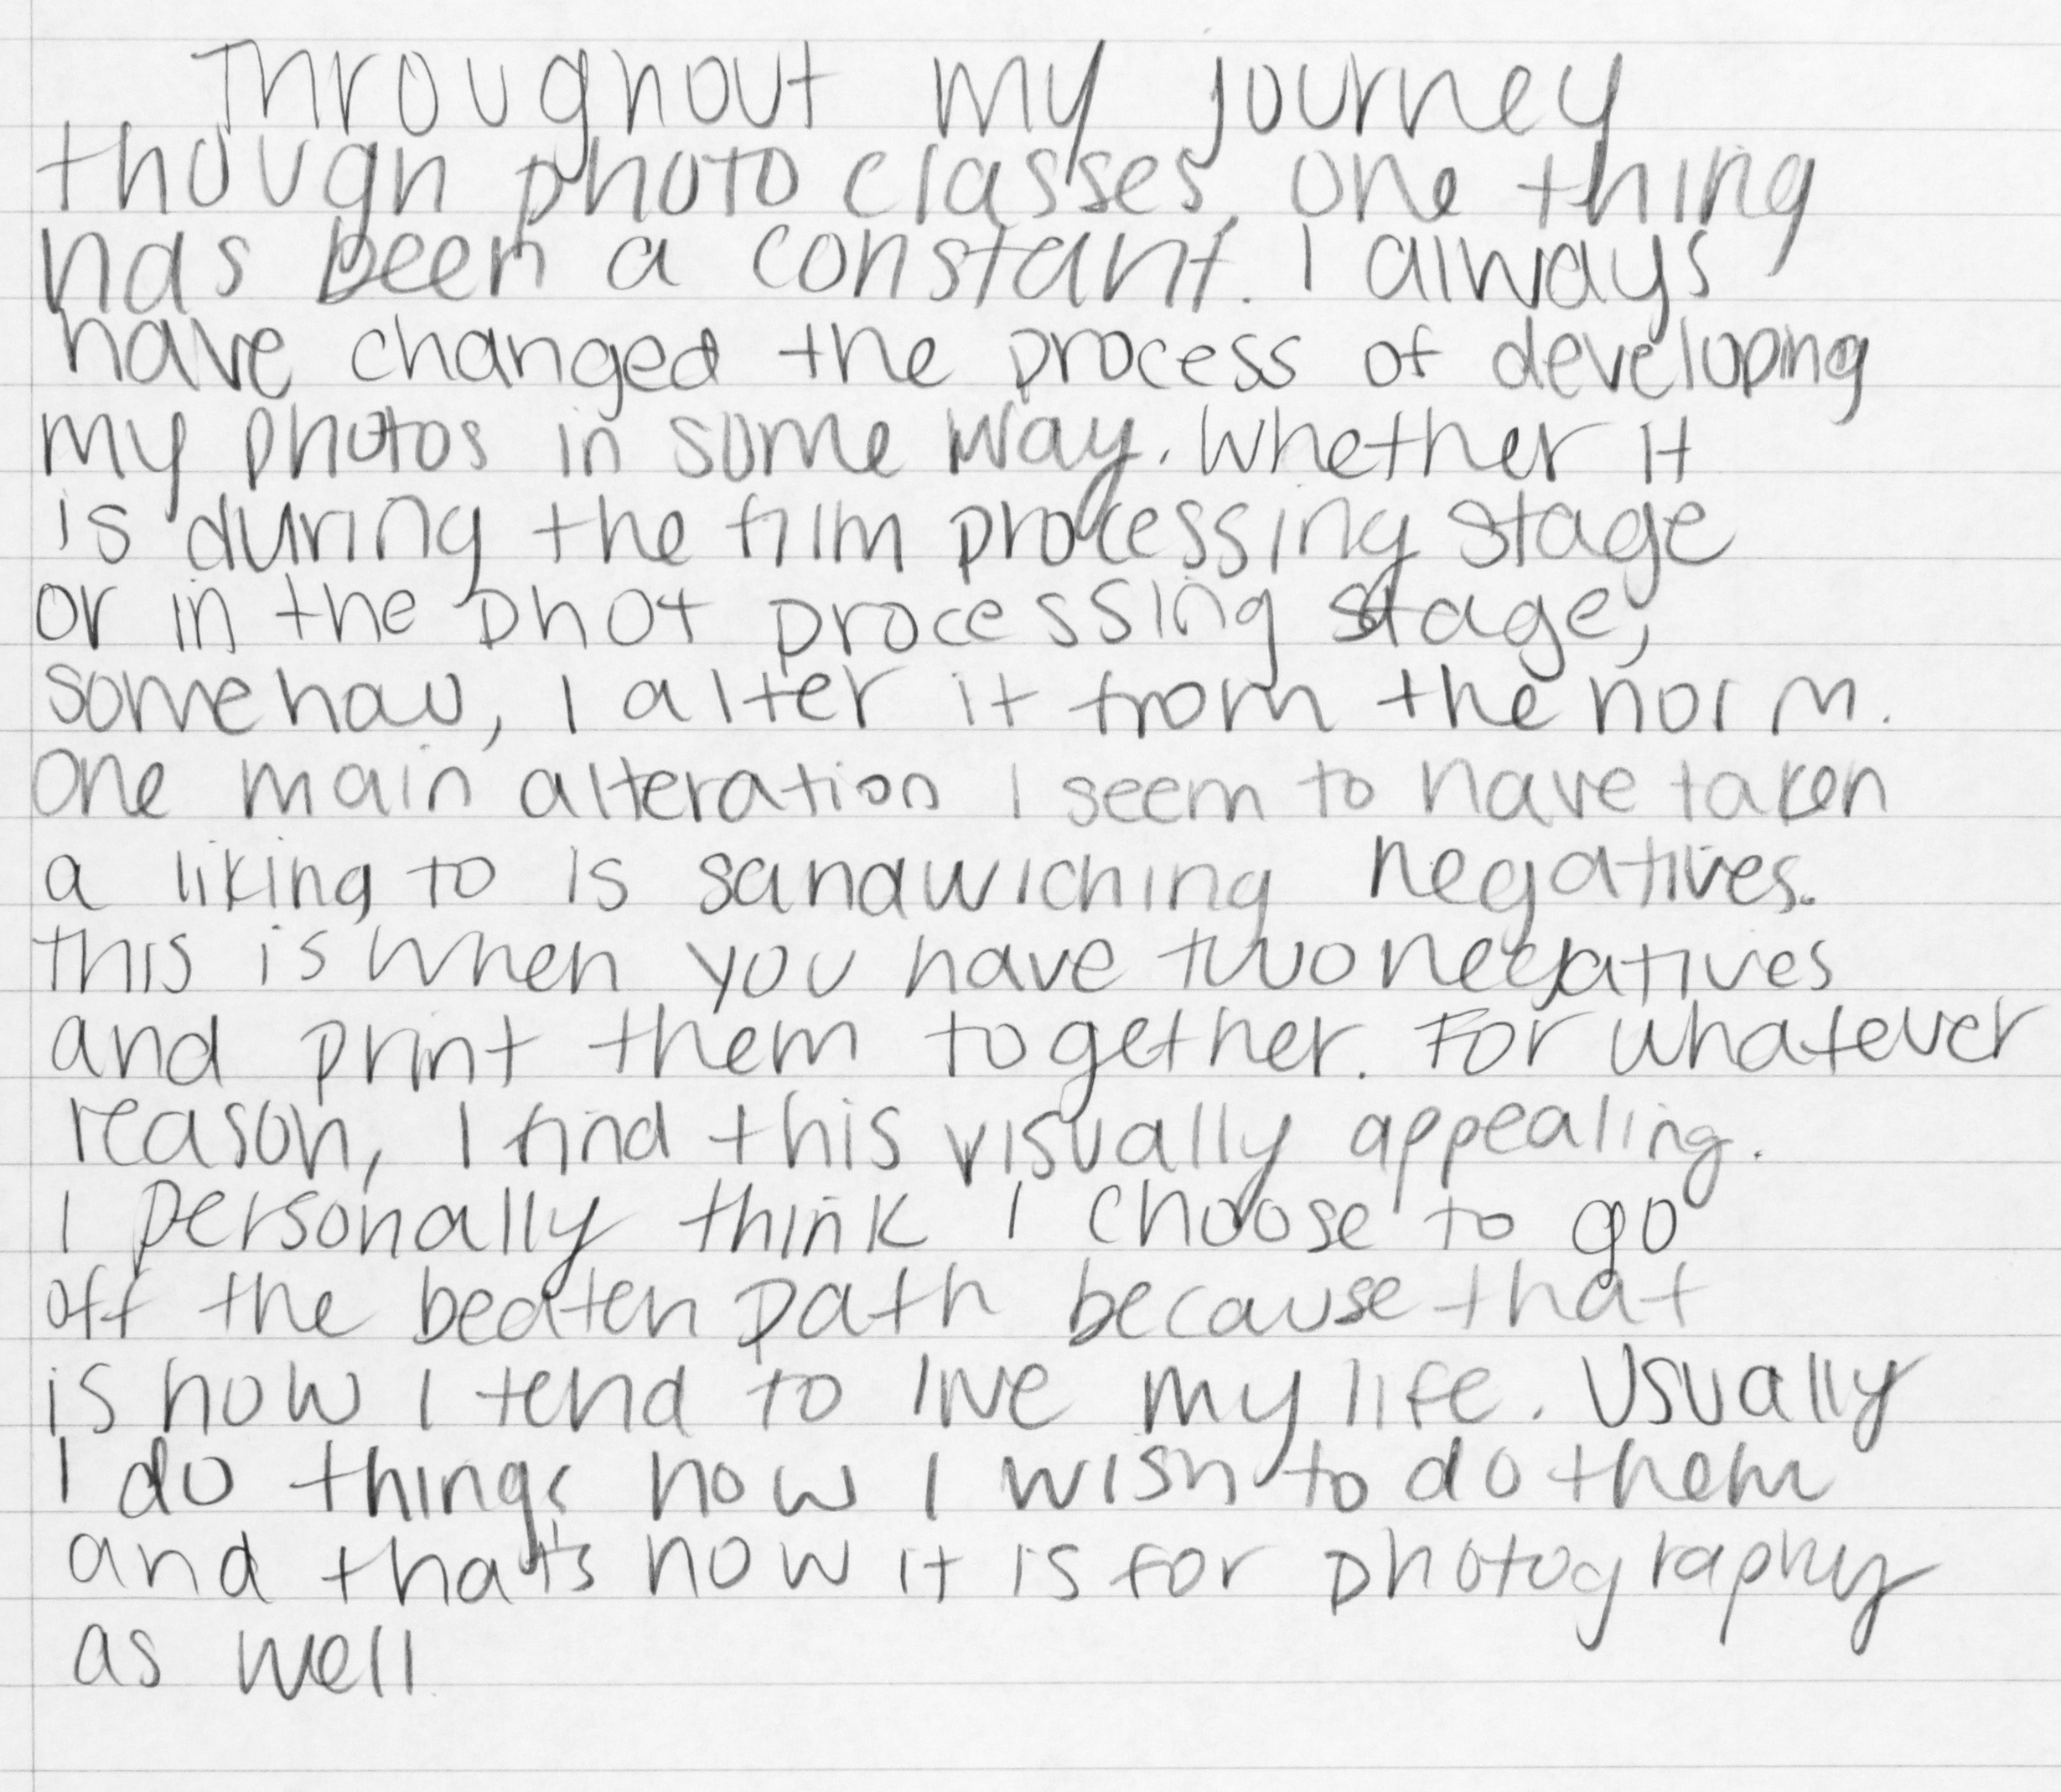 Throughout my journey
though photo classes, one thing
has been a constant. I always
have changed the process of developing
my photos in some way. Whether it
is during the film processing stage
or in the phot processing stage,
somehow, I alter it from the norm.
One main alteration I seem to have taken
a liking to is sandwiching negatives.
This is when you have two negatives
and print them together. For whatever
reason, I find this visually appealing.
I personally think I choose to go
off the beaten path because that
is how I tend to live my life. Usually
I do things how I wish to do them
and that's how it is for photography
as well.